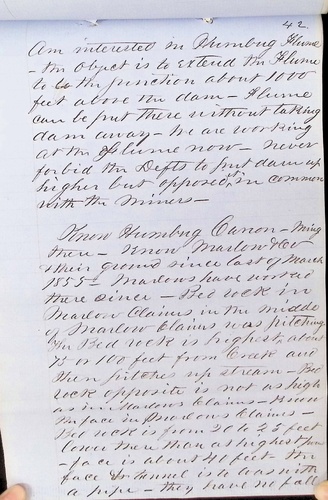 42
Am interested in Humbug Flume
- the object is to extend the Flume
to the junction about 1000
feet above the dam - Flume
can be put there without taking
dam away - We are working
at the Flume now - never
forbid the Defts to put dam up
higher but opposed it in common
with the Miners -
Know Humbug Canon - Mining
there - Know Marlow & Co
& their ground since last of March
1855 - Marlows have worked
there since - Bed rock in
Marlow Claims in the middle
of Marlow Claims was pitching
The Bed rock is highest about
75 or 100 feet from Creek and
then pitches up stream - Bed
rock opposite is not as high
as in Marlows Claims - Know
the face in Marlows Claims -
Bed rock is from 20 to 25 feet
lower there than at highest
face is about 40 feet - the
face & Tunnel is to wash with
a pipe - they have no fall